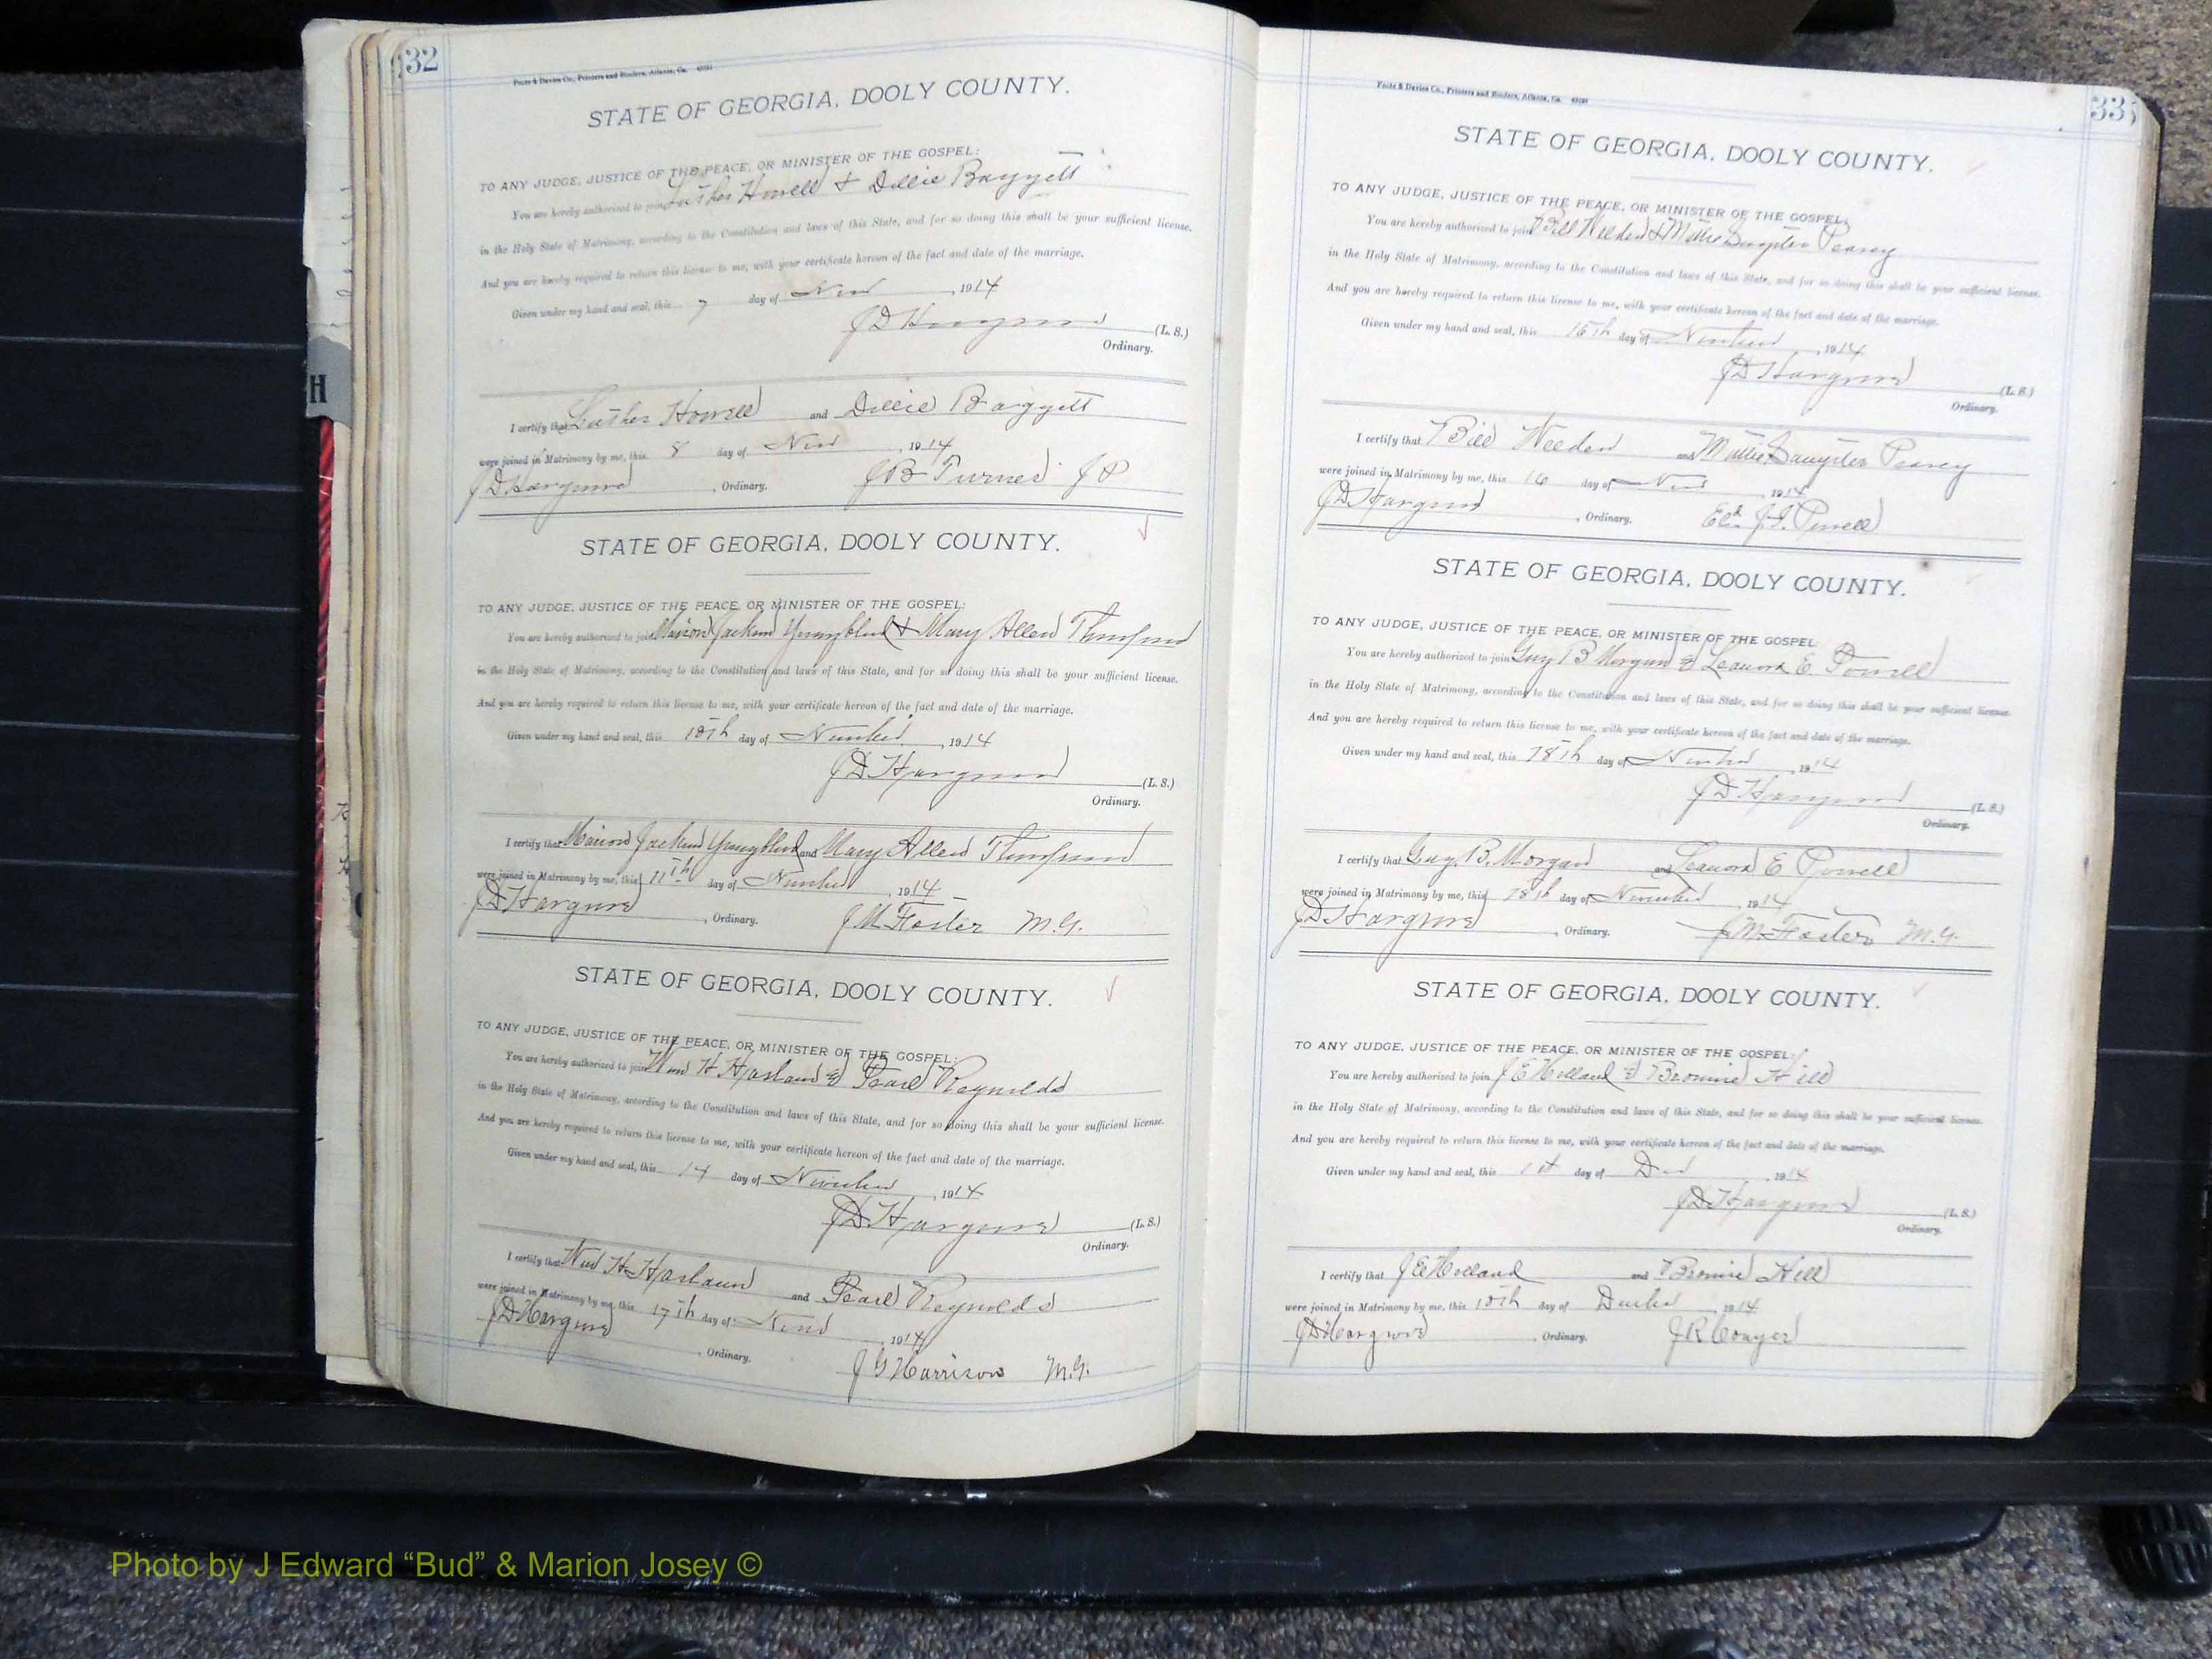 32
Foote & Davies Co., Printers and Binders, Atlanta, Ga.
STATE OF GEORGIA, DOOLY COUNTY.
TO ANY JUDGE, JUSTICE OF THE PEACE, OR MINISTER OF THE GOSPEL:
You are hereby authorized to join Luther Howell & Dillie Baggett
in the Holy State of Matrimony, according to the Constitution and laws of this State, and for so doing this shall be your sufficient license.
And you are hereby required to return this license to me, with your certificate hereon of the fact and date of the marriage.
Given under my hand and seal, this 7 day of Nov, 1914
J D Hargrove (L. S.)
Ordinary.
I certify that Luther Howell and Dillie Baggett
were joined in Matrimony by me, this 8 day of Nov, 1914
J D Hargrove, Ordinary. J B Turner J P
STATE OF GEORGIA, DOOLY COUNTY.
TO ANY JUDGE, JUSTICE OF THE PEACE, OR MINISTER OF THE GOSPEL:
You are hereby authorized to join Marion Jackson Youngblood & Mary Allen Thompson
in the Holy State of Matrimony, according to the Constitution and laws of this State, and for so doing this shall be your sufficient license.
And you are hereby required to return this license to me, with your certificate hereon of the fact and date of the marriage.
Given under my hand and seal, this 10th day of November, 1914
J D Hargrove (L. S.)
Ordinary.
I certify that Marion Jackson Youngblood and Mary Allen Thompson
were joined in Matrimony by me, this 11th day of November, 1914
J D Hargrove, Ordinary. J M Foster M.G.
STATE OF GEORGIA, DOOLY COUNTY.
TO ANY JUDGE, JUSTICE OF THE PEACE, OR MINISTER OF THE GOSPEL:
You are hereby authorized to join Wm H Harland & Pearl Reynolds
in the Holy State of Matrimony, according to the Constitution and laws of this State, and for so doing this shall be your sufficient license.
And you are hereby required to return this license to me, with your certificate hereon of the fact and date of the marriage.
Given under my hand and seal, this 14 day of November, 1914
J D Hargrove (L. S.)
Ordinary.
I certify that Wm H Harland and Pearl Reynolds
were joined in Matrimony by me, this 17th day of Nov, 1914
J D Hargrove, Ordinary. J G Harrison M.G.
33
Foote & Davies Co., Printers and Binders, Atlanta, Ga.
STATE OF GEORGIA, DOOLY COUNTY.
TO ANY JUDGE, JUSTICE OF THE PEACE, OR MINISTER OF THE GOSPEL:
You are hereby authorized to join Bill Weeden & Mattie Pearey
in the Holy State of Matrimony, according to the Constitution and laws of this State, and for so doing this shall be your sufficient license.
And you are hereby required to return this license to me, with your certificate hereon of the fact and date of the marriage.
Given under my hand and seal, this day of November, 1914
J D Hargrove (L. S.)
Ordinary.
I certify that Bill Weeden and Mattie Pearey
were joined in Matrimony by me, this 16 day of Nov, 1914
J D Hargrove, Ordinary. Eld
STATE OF GEORGIA, DOOLY COUNTY.
TO ANY JUDGE, JUSTICE OF THE PEACE, OR MINISTER OF THE GOSPEL:
You are hereby authorized to join Guy B Morgan & Leanora E. Powell
in the Holy State of Matrimony, according to the Constitution and laws of this State, and for so doing this shall be your sufficient license.
And you are hereby required to return this license to me, with your certificate hereon of the fact and date of the marriage.
Given under my hand and seal, this 18th day of November, 1914
J D Hargrove (L. S.)
Ordinary.
I certify that Guy B. Morgan and Leanora E Powell
were joined in Matrimony by me, this 18th day of November, 1914
J D Hargrove, Ordinary. J M Foster M.G.
STATE OF GEORGIA, DOOLY COUNTY.
TO ANY JUDGE, JUSTICE OF THE PEACE, OR MINISTER OF THE GOSPEL:
You are hereby authorized to join J E Holland & Bronnie Hill
in the Holy State of Matrimony, according to the Constitution and laws of this State, and for so doing this shall be your sufficient license.
And you are hereby required to return this license to me, with your certificate hereon of the fact and date of the marriage.
Given under my hand and seal, this 1st day of Dec, 1914
J D Hargrove (L. S.)
Ordinary.
I certify that J E Holland and Bronnie Hill
were joined in Matrimony by me, this 10th day of December, 1914
J D Hargrove, Ordinary. J R Conyer
H
Photo by J Edward “Bud” & Marion Josey ©